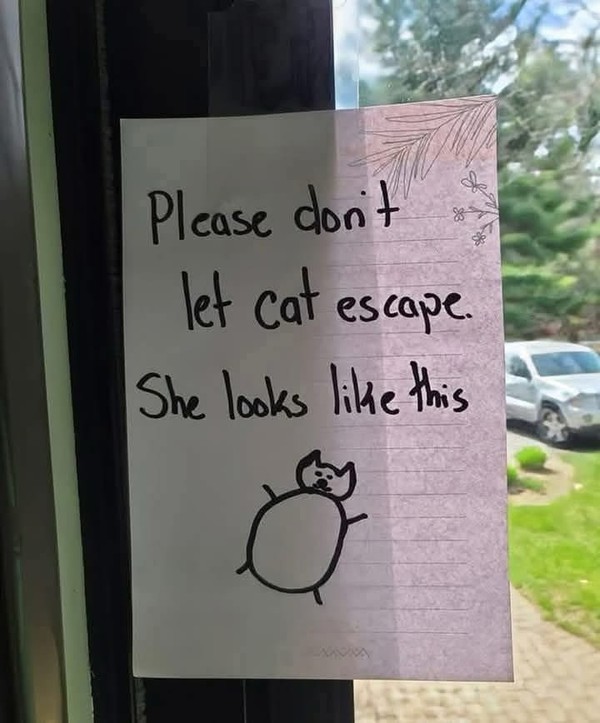 Please don't
let cat escape.
She looks like this